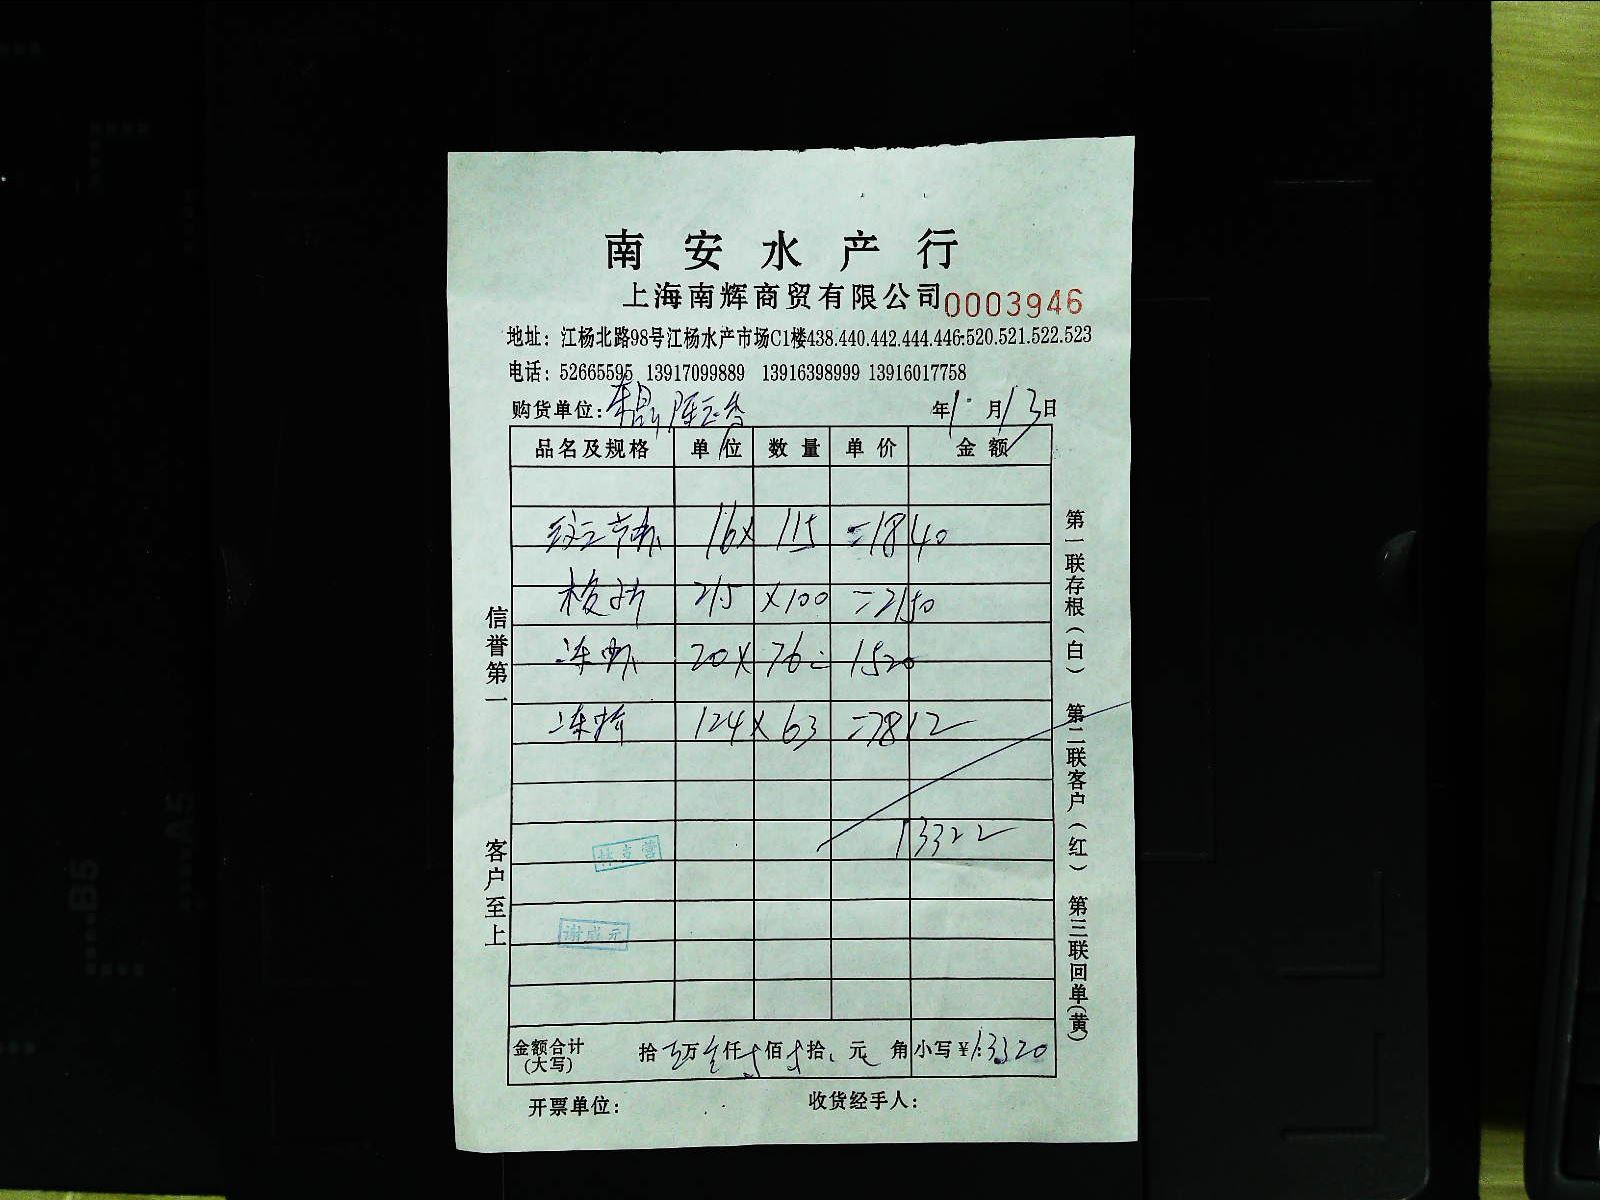 南安水产行
上海南辉商贸有限公司 0003946
地址：江杨北路98号江杨水产市场C1楼438.440.442.444.446-520.521.522.523
电话：52665595 13917099889 13916398999 13916017758
购货单位： 年1月13日
品名及规格 单位 数量 单价 金额
16× 115 =1840
215 ×100 =2150
冻虾 20× 76= 1520
124× 63 =7812
13322
谢成元
金额合计
(大写) 拾 万 仟 佰 拾 元 角 小写￥:13320
开票单位： 收货经手人：
信誉第一 客户至上
第一联存根(白) 第二联客户(红) 第三联回单(黄)
B5
A5